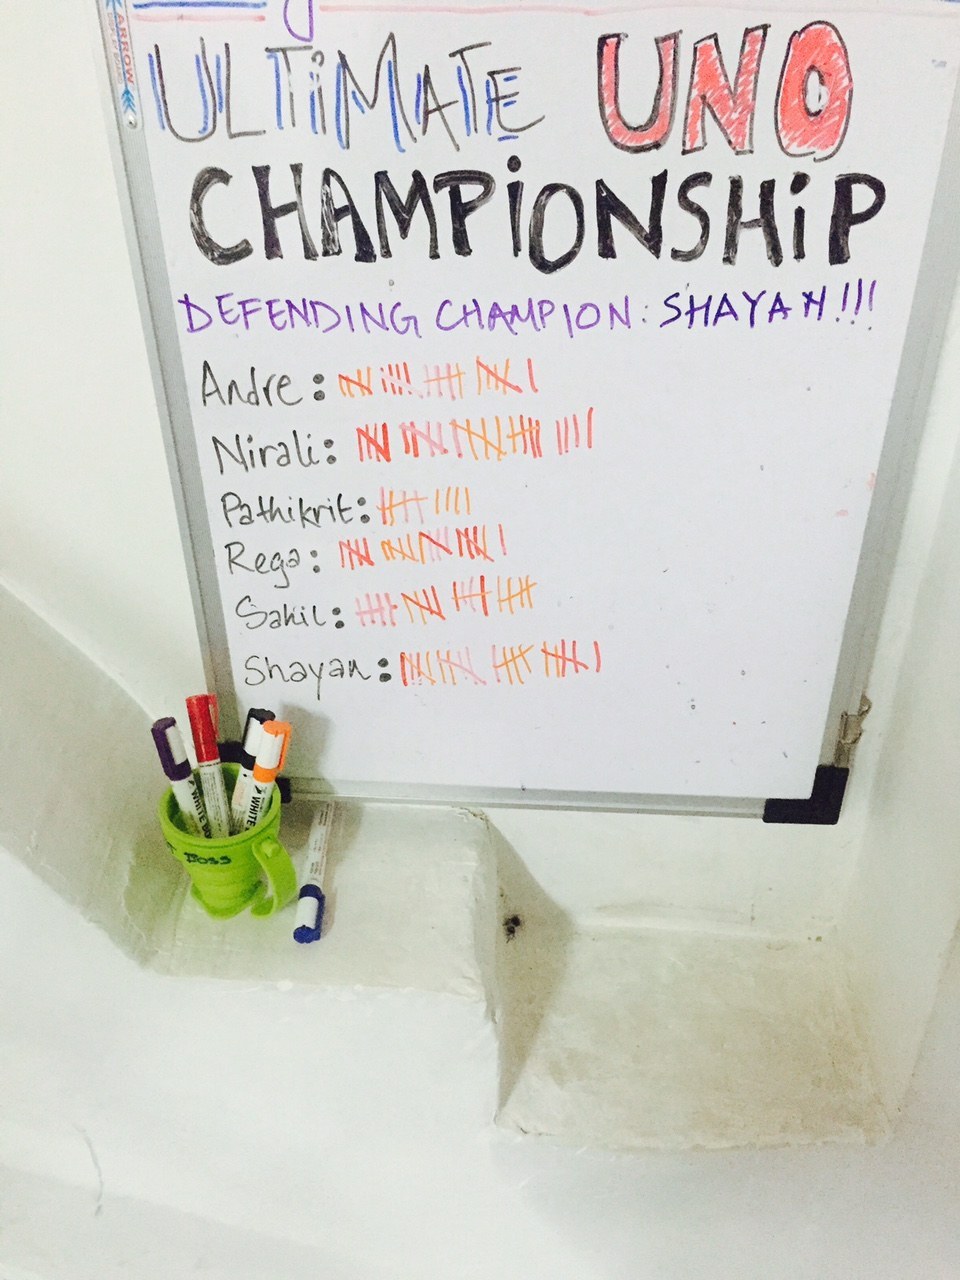 ARROW
ULTiMATE UNO
CHAMPiONSHiP
DEFENDING CHAMPION: SHAYAN!!!
Andre:
Nirali:
Pathikrit:
Rega:
Sahil:
Shayan:
Boss
WHITE BO
WHITE